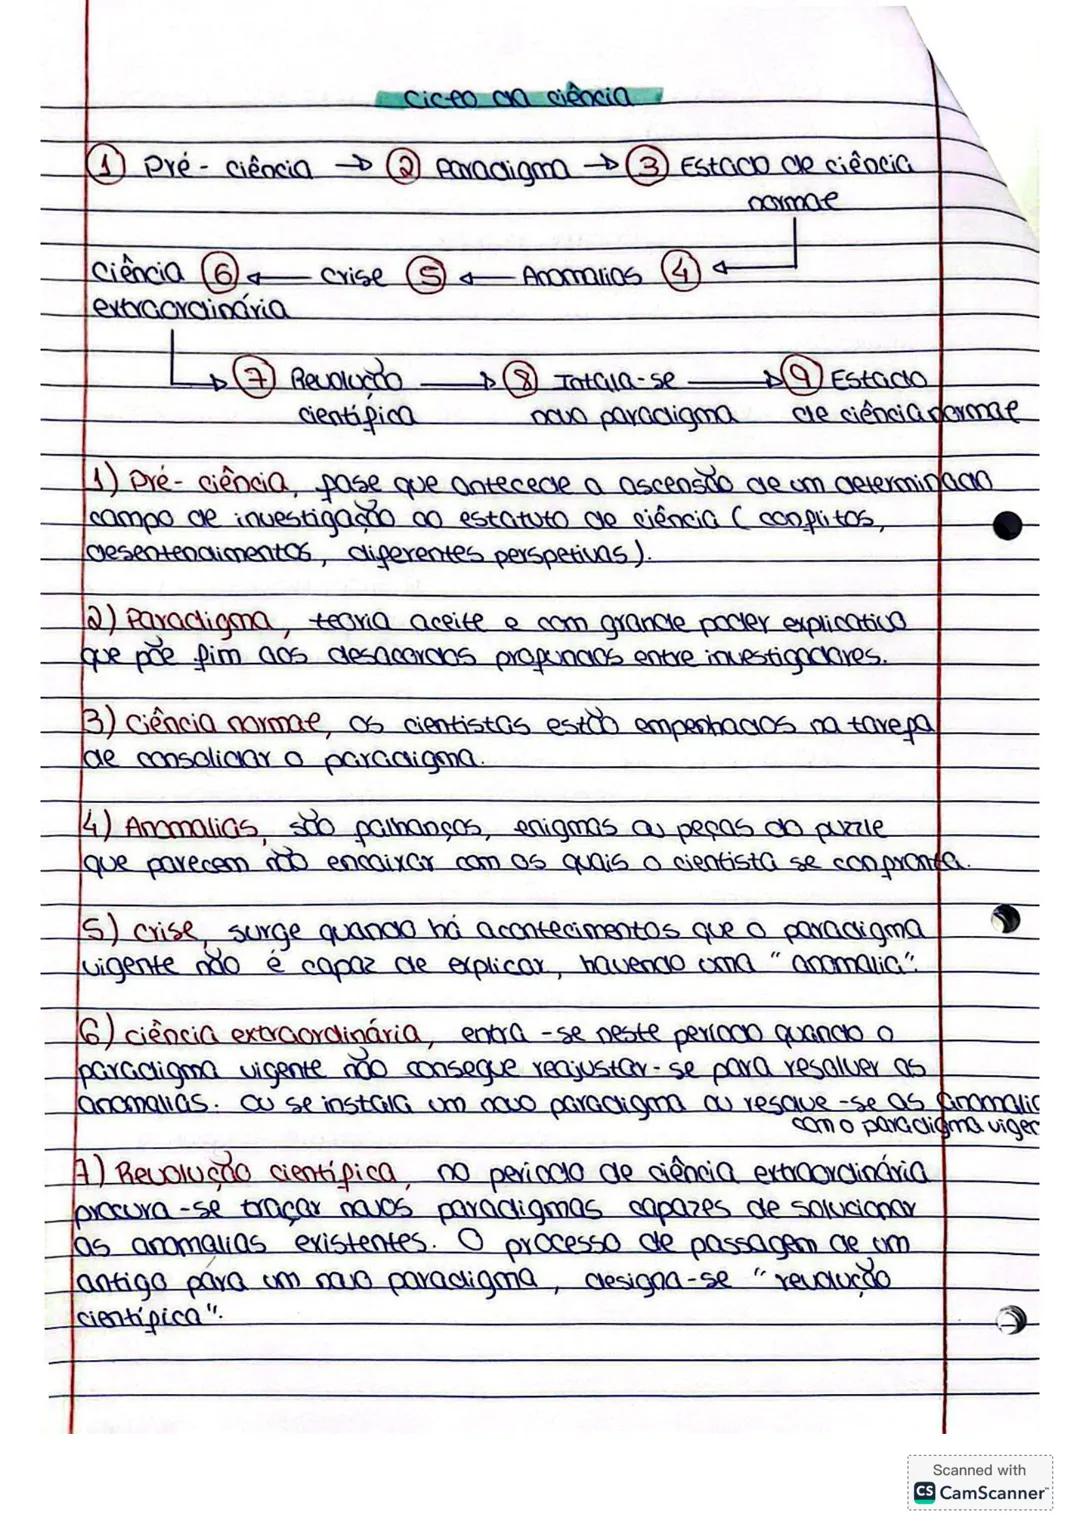 Ciclo da ciência
① Pré - ciência → ② Paradigma → ③ Estado de ciência
normal
Ciência ⑥ ← Crise ⑤ ← Anomalias ④ ←
extraordinária
→ ⑦ Revolução → ⑧ Intala-se → ⑨ Estado
científica novo paradigma de ciência normal
1) Pré - ciência, fase que antecede a ascensão de um determinado
campo de investigação ao estatuto de ciência ( conflitos,
desentendimentos, diferentes perspetivas ).
2) Paradigma, teoria aceite e com grande poder explicativo
que põe fim aos desacordos profundos entre investigadores.
3) Ciência normal, os cientistas estão empenhados na tarefa
de consolidar o paradigma.
4) Anomalias, são falhanços, enigmas ou peças do puzzle
que parecem não encaixar com os quais o cientista se confronta.
5) Crise, surge quando há acontecimentos que o paradigma
vigente não é capaz de explicar, havendo uma "anomalia".
6) Ciência extraordinária, entra -se neste período quando o
paradigma vigente não consegue reajustar - se para resolver as
anomalias. Ou se instala um novo paradigma ou resolve -se as anomalic
com o paradigma viger
7) Revolução científica, no período de ciência extraordinária
procura -se traçar novos paradigmas capazes de solucionar
as anomalias existentes. O processo de passagem de um
antigo para um novo paradigma, designa-se "revolução
científica".
Scanned with
CS CamScanner